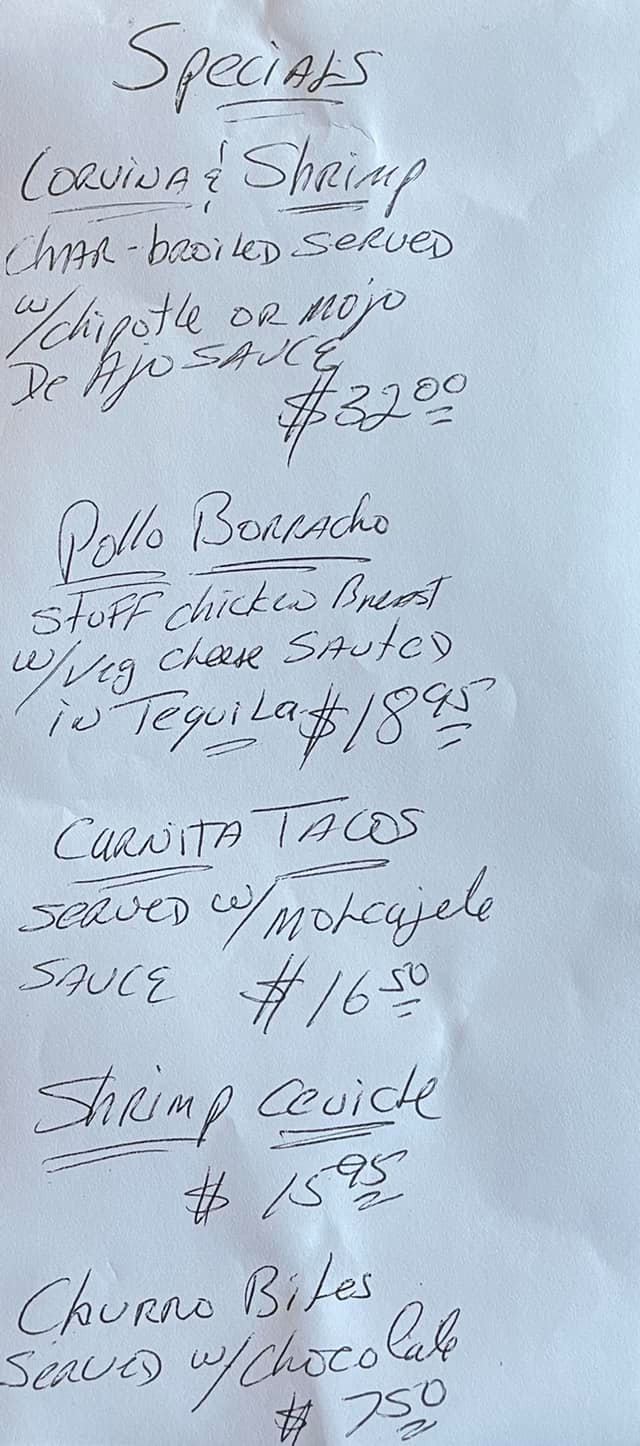 Specials
Corvina & Shrimp
Char-broiled served
w/chipotle or mojo
De Ajo Sauce
$32.00
Pollo Borracho
Stuff chicken Breast
w/veg cheese sauted
in Tequila $18.95
Carnita Tacos
served w/molcajete
sauce $16.50
Shrimp Ceviche
$15.95
Churro Bites
served w/chocolate
$7.50